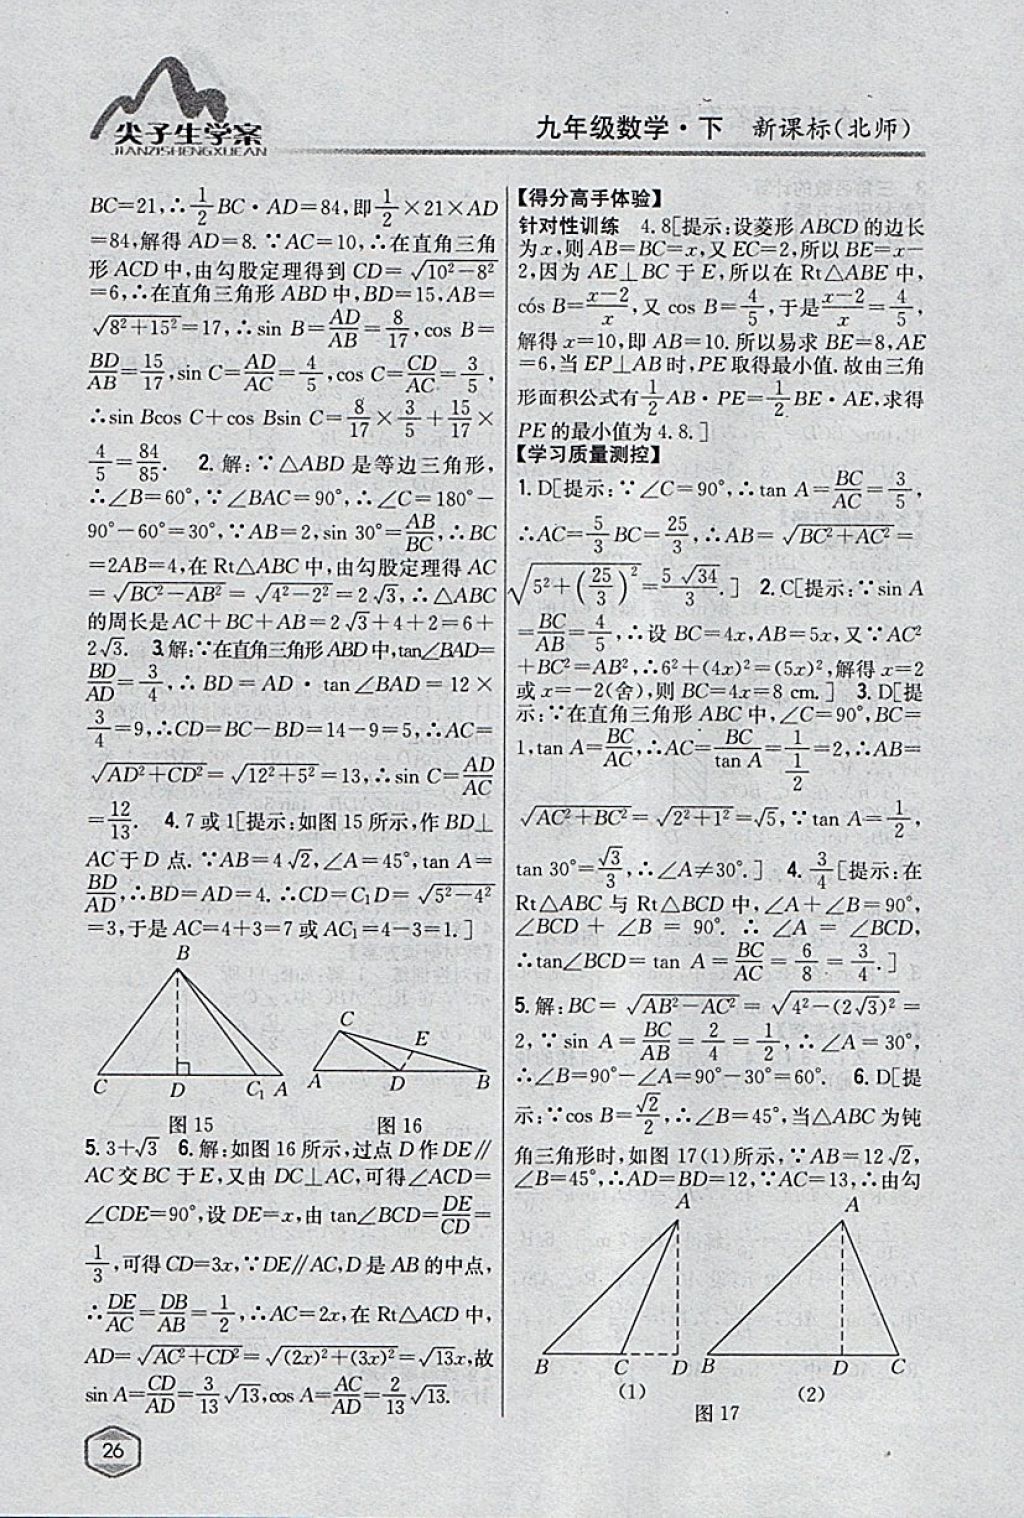 尖子生学案
JIANZISHENGXUEAN
九年级数学·下 新课标(北师)
BC=21,∴1/2BC·AD=84,即1/2×21×AD
=84,解得 AD=8.∵AC=10,∴在直角三角
形 ACD 中,由勾股定理得到 CD=√(10²-8²)
=6,∴在直角三角形 ABD 中,BD=15,AB=
√(8²+15²)=17,∴sin B=AD/AB=8/17,cos B=
BD/AB=15/17,sin C=AD/AC=4/5,cos C=CD/AC=3/5,
∴sin Bcos C+cos Bsin C=8/17×3/5+15/17×
4/5=84/85. 2.解:∵△ABD 是等边三角形,
∴∠B=60°,∵∠BAC=90°,∴∠C=180°-
90°-60°=30°,∵AB=2,sin 30°=AB/BC,∴BC
=2AB=4,在 Rt△ABC 中,由勾股定理得 AC
=√(BC²-AB²)=√(4²-2²)=2√3,∴△ABC
的周长是 AC+BC+AB=2√3+4+2=6+
2√3. 3.解:∵在直角三角形 ABD 中,tan∠BAD=
BD/AD=3/4,∴BD=AD·tan∠BAD=12×
3/4=9,∴CD=BC-BD=14-9=5,∴AC=
√(AD²+CD²)=√(12²+5²)=13,∴sin C=AD/AC
=12/13. 4.7 或 1[提示:如图 15 所示,作 BD⊥
AC 于 D 点.∵AB=4√2,∠A=45°,tan A=
BD/AD,∴BD=AD=4.∴CD=C₁D=√(5²-4²)
=3,于是 AC=4+3=7 或 AC₁=4-3=1.]
B
C D C₁ A
图 15
C E
A D B
图 16
5. 3+√3 6.解:如图 16 所示,过点 D 作 DE∥
AC 交 BC 于 E,又由 DC⊥AC,可得∠ACD=
∠CDE=90°,设 DE=x,由 tan∠BCD=DE/CD=
1/3,可得 CD=3x,∵DE∥AC,D 是 AB 的中点,
∴DE/AC=DB/AB=1/2,∴AC=2x,在 Rt△ACD 中,
AD=√(AC²+CD²)=√((2x)²+(3x)²)=√13x,故
sin A=CD/AD=3/13√13,cos A=AC/AD=2/13√13.
26
【得分高手体验】
针对性训练 4.8[提示:设菱形 ABCD 的边长
为 x,则 AB=BC=x,又 EC=2,所以 BE=x-
2,因为 AE⊥BC 于 E,所以在 Rt△ABE 中,
cos B=(x-2)/x,又 cos B=4/5,于是(x-2)/x=4/5,
解得 x=10,即 AB=10.所以易求 BE=8,AE
=6,当 EP⊥AB 时,PE 取得最小值.故由三角
形面积公式有1/2AB·PE=1/2BE·AE,求得
PE 的最小值为 4.8.]
【学习质量测控】
1.D[提示:∵∠C=90°,∴tan A=BC/AC=3/5,
∴AC=5/3BC=25/3,∴AB=√(BC²+AC²)=
√(5²+(25/3)²)=5√34/3.] 2.C[提示:∵sin A
=BC/AB=4/5,∴设 BC=4x,AB=5x,又∵AC²
+BC²=AB²,∴6²+(4x)²=(5x)²,解得 x=2
或 x=-2(舍),则 BC=4x=8 cm.] 3.D[提
示:∵在直角三角形 ABC 中,∠C=90°,BC=
1,tan A=BC/AC,∴AC=BC/tan A=1/(1/2)=2,∴AB=
√(AC²+BC²)=√(2²+1²)=√5,∵tan A=1/2,
tan 30°=√3/3,∴∠A≠30°.] 4. 3/4[提示:在
Rt△ABC 与 Rt△BCD 中,∠A+∠B=90°,
∠BCD+∠B=90°.∴∠A=∠BCD,
∴tan∠BCD=tan A=BC/AC=6/8=3/4.]
5.解:BC=√(AB²-AC²)=√(4²-(2√3)²)=
2,∵sin A=BC/AB=2/4=1/2,∴∠A=30°,
∴∠B=90°-∠A=90°-30°=60°. 6.D[提
示:∵cos B=√2/2,∴∠B=45°,当△ABC 为钝
角三角形时,如图 17(1)所示,∵AB=12√2,
∠B=45°,∴AD=BD=12,∵AC=13,∴由勾
A
B C D
(1)
A
B D C
(2)
图 17